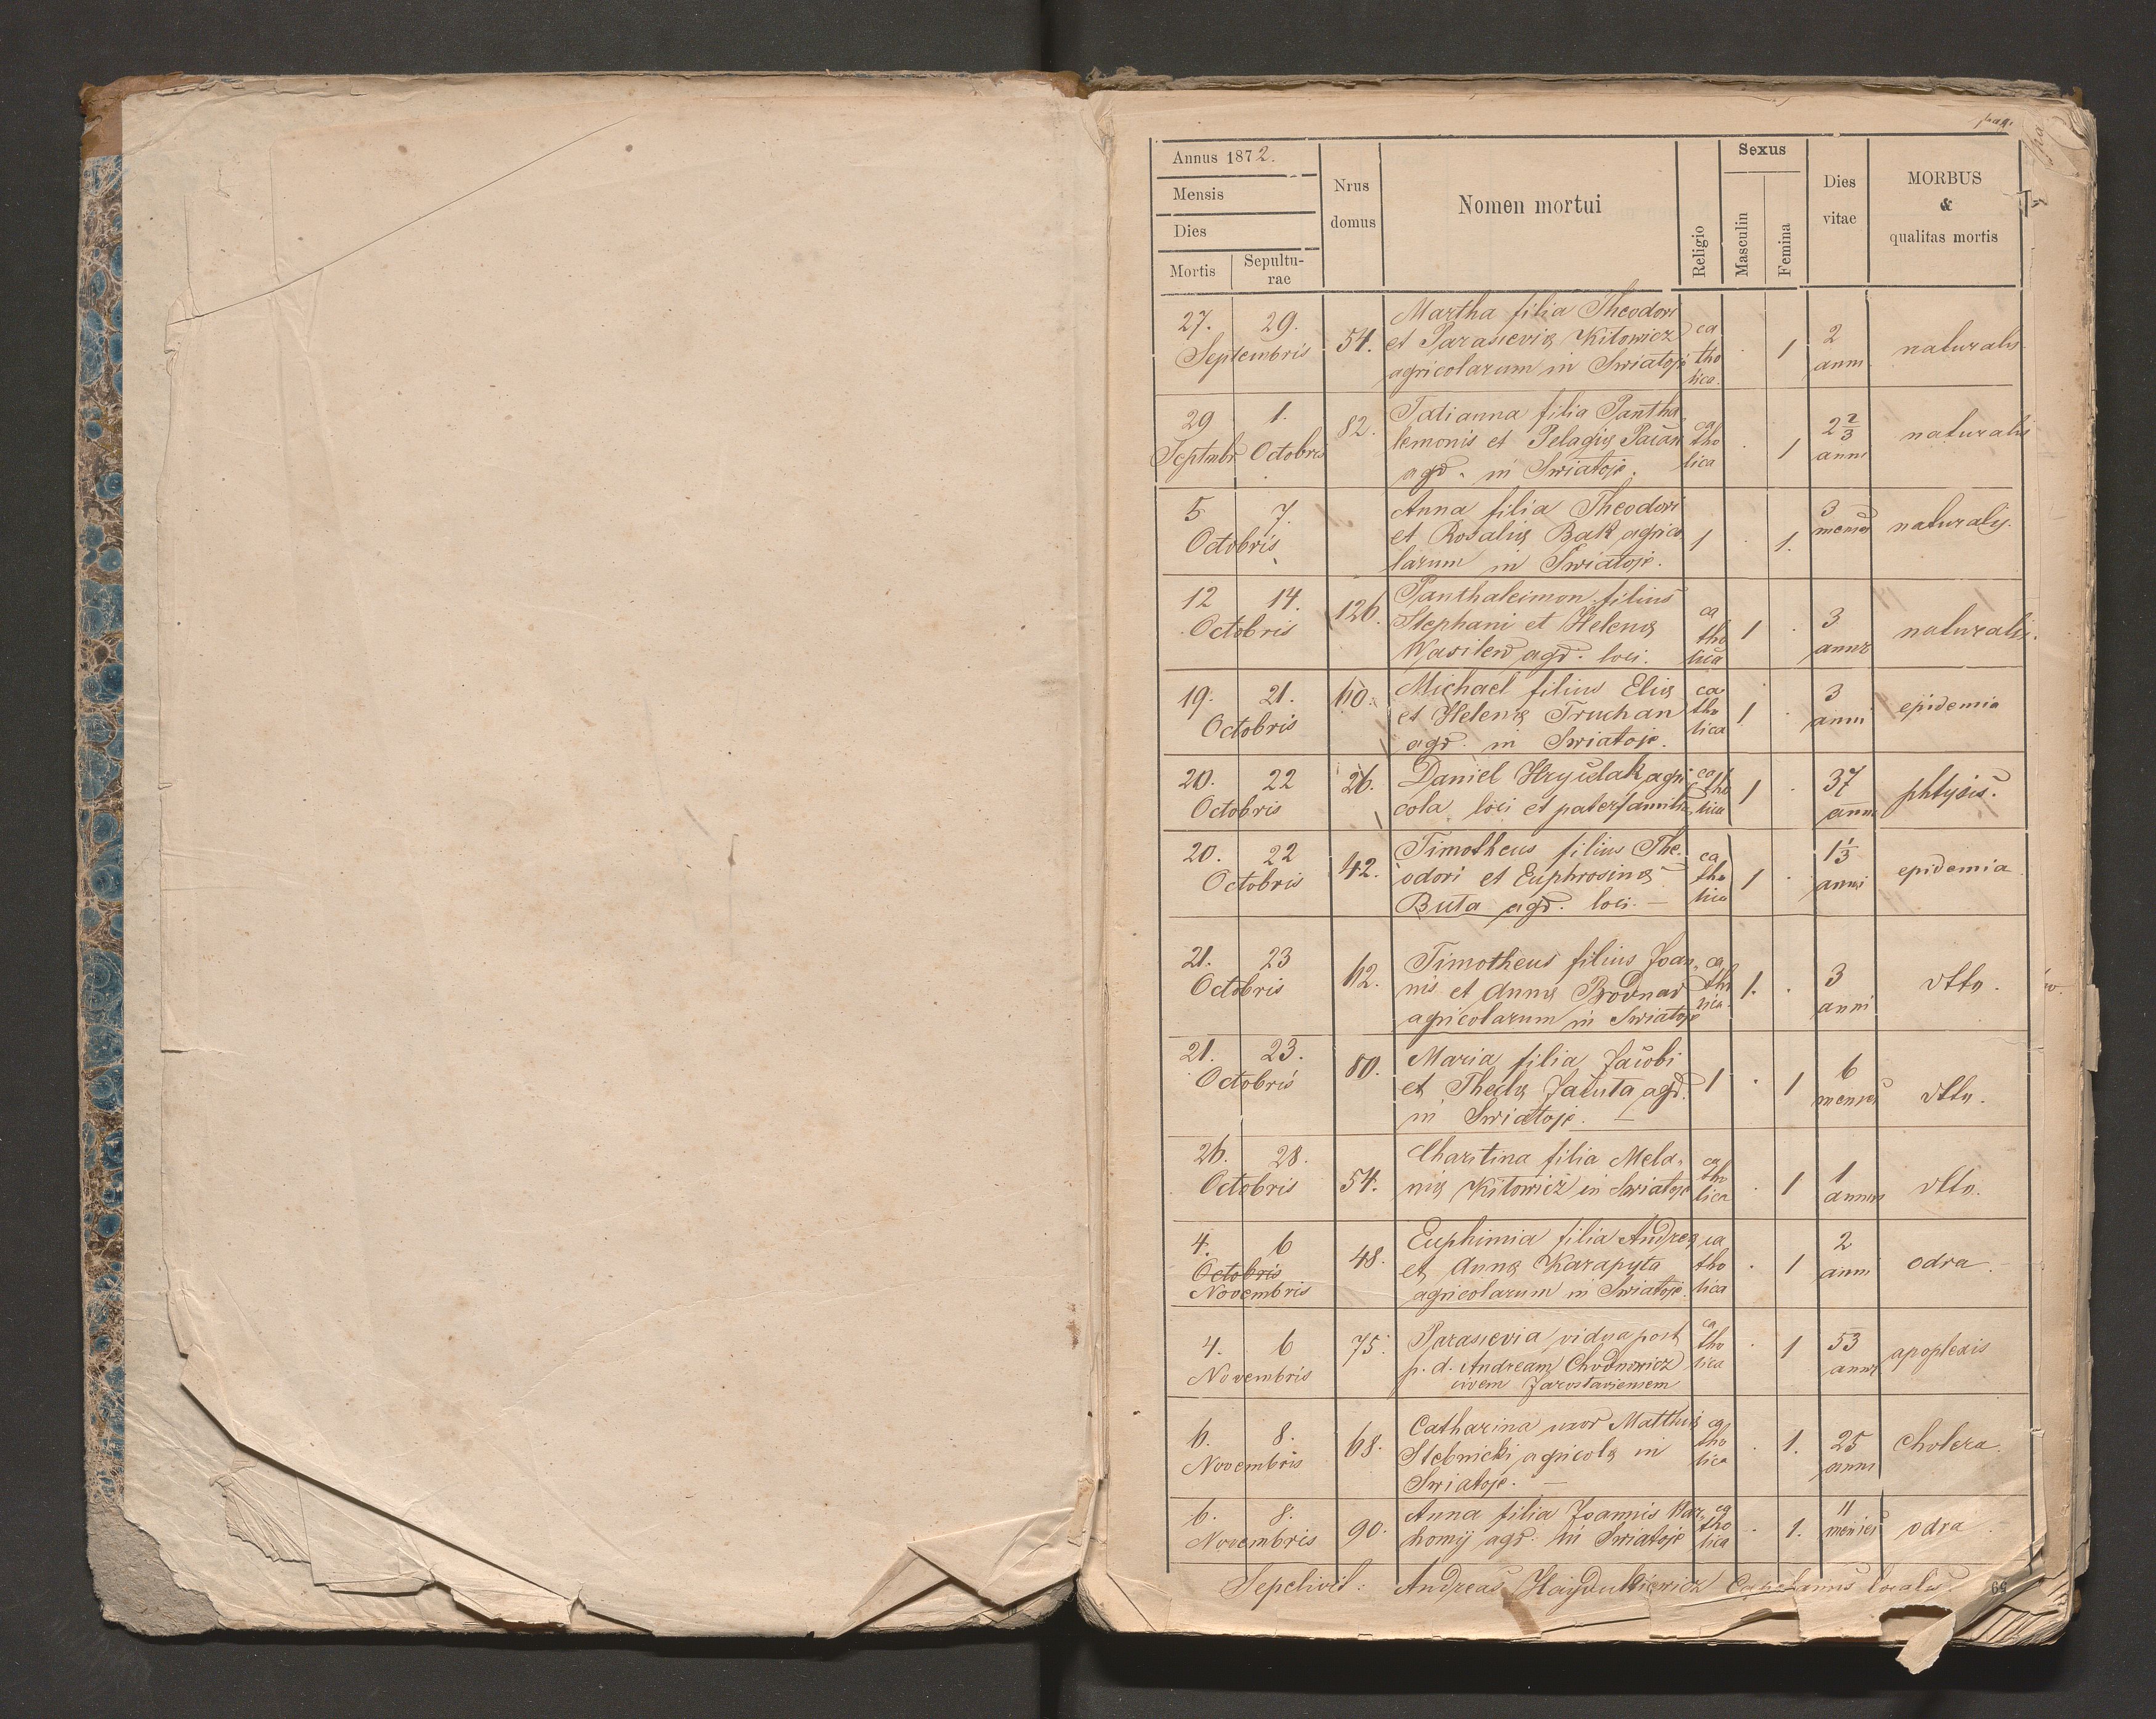 pag.
Annus 1872.
Mensis
Dies
Mortis Sepultu-
rae
Nrus
domus
Nomen mortui
Religio
Sexus
Masculin
Femina
Dies
vitae
MORBUS
&
qualitas mortis
27. 29. Septembris 54. Martha filia Theodori
et Parasieviæ Kitowicz
agricolarum in Swiatoje
ca
tho
lica. · 1 2
anni naturalis
29 1. Septmbr Octobris 82. Tatianna filia Pantha
lemonis et Pelagiæ
agr. in Swiatoje.
ca
tho
lica · 1 2 2/3
anni naturalis
5 7. Octobris Anna filia Theodori
et Rosaliæ Bak agrico
larum in Swiatoje.
1 · 1. 3
menses naturalis.
12 14. Octobris 126. Panthaleimon filius
Stephani et Helenæ
Wasilew agr. loci.
ca
tho
lica 1 · 3
anni naturalis.
19. 21. Octobris 60. Michael filius Eliæ
et Helenæ Truchan
agr. in Swiatoje.
ca
tho
lica 1 · 3
anni epidemia
20. 22 Octobris 26. Daniel Hryculak agri
cola loci et paterfamilias
ca
tho
lica 1 · 37
anni phtysis.
20. 22 Octobris 42. Timotheus filius The-
odori et Euphrosinæ
Buta agr. loci. —
ca
tho
lica 1 · 1 1/3
anni epidemia
21. 23 Octobris 62. Timotheus filius Joan-
nis et Annæ Brodnar
agricolarum in Swiatoje
ca
tho
lica. 1. · 3
anni dtto.
21. 23. Octobris 80. Maria filia Jacobi
et Theclæ Jacuta agr.
in Swiatoje. —
1 · 1 6
menses dtto.
26. 28. Octobris 54. Charitina filia Mela-
niæ Kitowicz in Swiatoje
ca
tho
lica · 1 1
annus dtto.
4. 6 Octobris
Novembris 48. Euphimia filia Andreæ
et Annæ Karapyta
agricolarum in Swiatoje.
ca
tho
lica · 1 2
anni odra
4. 6 Novembris 75. Parasievia vidua post
p. d. Andream Chodnowicz
civem Jaroslaviensem
ca
tho
lica · 1 53
anni apoplexis
6. 8. Novembris 68. Catharina uxor Matthiæ
Stebnicki agricolæ in
Swiatoje. —
ca
tho
lica · 1. 25
anni cholera.
6. 8. Novembris 90. Anna filia Joannis War-
homij agr. in Swiatoje
ca
tho
lica · 1. 11
menses odra
Sepelivit: Andreas Hajdukiewicz Capellanus localis.
69